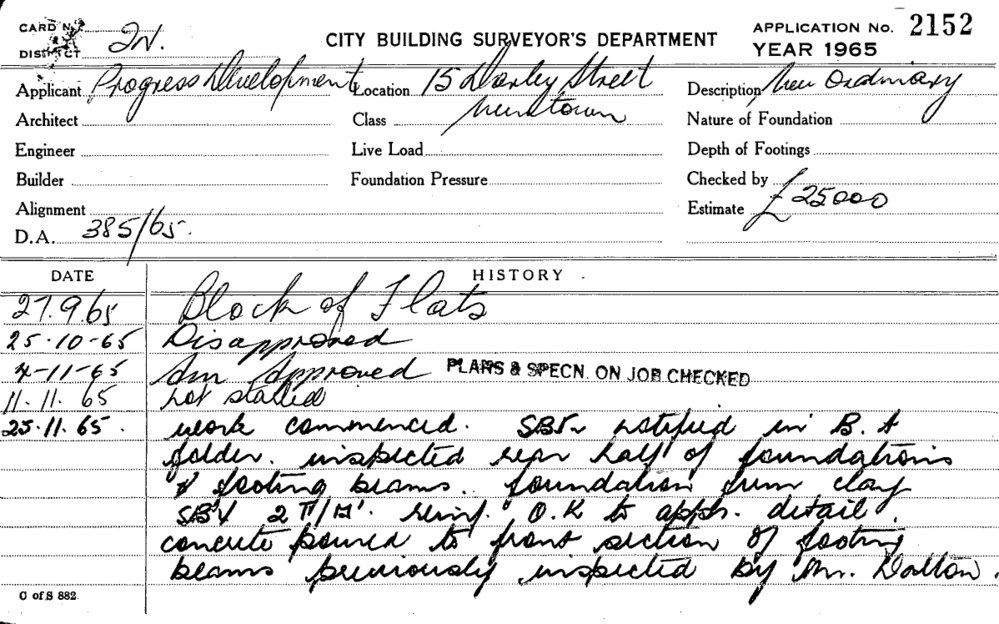 CARD No.
&
DISTRICT 2N. CITY BUILDING SURVEYOR'S DEPARTMENT APPLICATION No. 2152
YEAR 1965
Applicant Progress Development Location 15 Darley Street Description New Ordinary
Architect Class Newtown Nature of Foundation
Engineer Live Load Depth of Footings
Builder Foundation Pressure Checked by
Alignment Estimate £25000
D.A. 385/65.
DATE HISTORY
27.9.65 Block of Flats
25-10-65 Disapproved
4-11-65 Am Approved PLANS & SPECN. ON JOB CHECKED
11.11.65 not started
25.11.65. work commenced. notified in B.A
folder. inspected rear half of foundations
& footing beams. foundation firm clay
reinf. O.K to appr. detail.
concrete poured to front section of footing
beams previously inspected by Mr. Dalton.
C of S 882